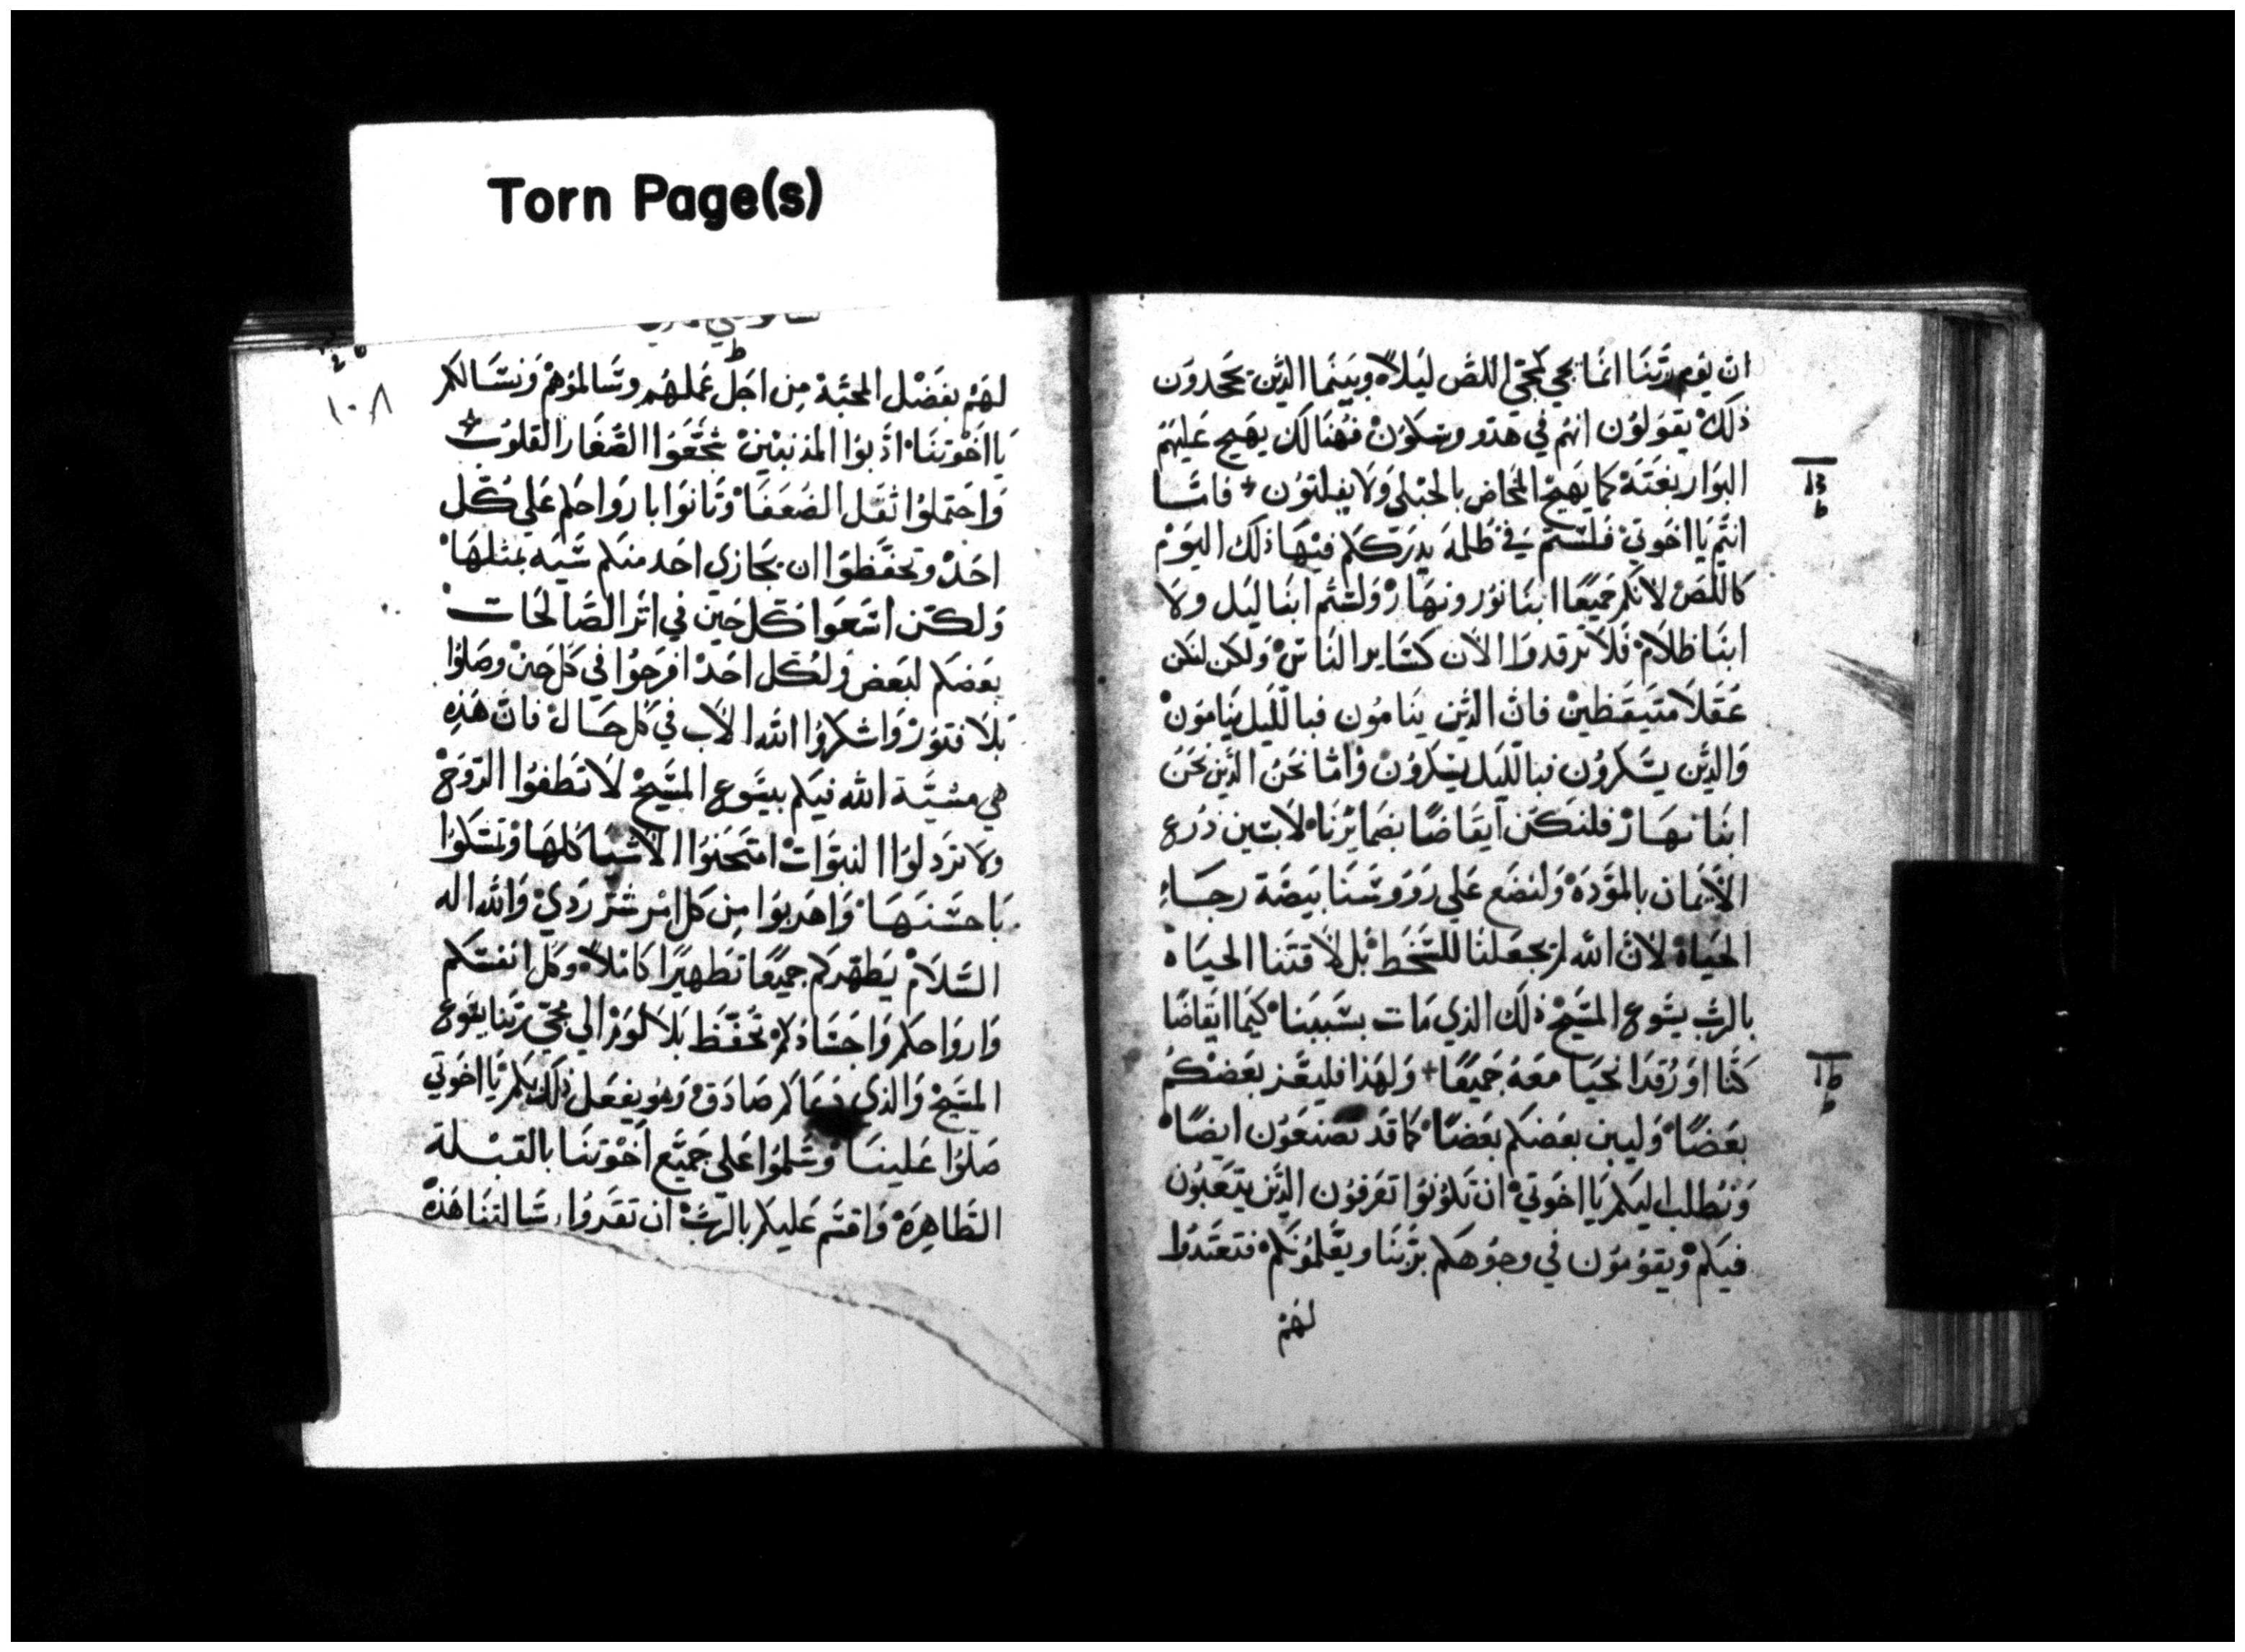 Torn Page(s)
ان يوم ربنا انما يجي كمجي اللص ليلاً وبينما الذين يجحدون
ذلك يقولون انهم في هدو وسكون فهنالك يهيج عليهم
البوار بغتة كما يهيج المخاض بالحبلي ولا يفلتون + فاما
انتم يا اخوتي فلستم في ظلمه يدرككم فيها ذلك اليوم
كاللص لانكم جميعًا ابنا نور ونهار ولستم ابنا ليل ولا
ابنا ظلام فلا ترقدوا الان كساير الناس ولكن لنكن
عقلا متيقظين فان الذين ينامون فبالليل ينامون
والذين يسكرون فبالليل يسكرون واما نحن الذين نحن
ابنا نهار فلنكن ايقاضًا بضمايرنا لابسين درع
الايمان بالموده ولنضع علي رووسنا بيضة رجاء
الحياه لان الله لم يجعلنا للسخط بل لاقتنا الحياه
بالرب يسوع المسيح ذلك الذي مات بسببنا كيما ايقاضًا
كنا او رقدا نحيا معه جميعًا + ولهذا فليعز بعضكم
بعضًا وليبن بعضكم بعضًا كما قد تصنعون ايضًا
ونطلب اليكم يا اخوتي ان تكونوا تعرفون الذين يتعبون
فيكم ويقومون في وجوهكم بربنا ويعلمونكم فتعتدوا
لهم
١٠٨
لهم بفضل المحبة من اجل عملهم وسالموهم ونسالكم
يا اخوتنا ادبوا المذنبين شجعوا الصغار القلوب
واحتملوا ثقل الضعفا وتانوا بارواحكم علي كل
احد وتحفظوا ان يجازي احد منكم سيه بمثلها
ولكن اسعوا كل حين في اثر الصالحات
بعضكم لبعض ولكل احد افرحوا في كل حين وصلوا
بلا فتور واشكروا الله الاب في كل حال فان هذه
هي مشيّة الله فيكم بيسوع المسيح لا تطفوا الروح
ولا تردلوا النبوات امتحنوا الاشيا كلها وتمسكوا
باحسنها واهربوا من كل امر شر ردي والله اله
السلام يطهركم جميعًا تطهيرًا كاملاً وكل انفسكم
وارواحكم واجسادكم تحفظ بلا لوم الي مجي ربنا يسوع
المسيح والذي دعاكم صادق وهو يفعل ذلك بكم يا اخوتي
صلوا علينا وسلموا علي جميع اخوتنا بالقبلة
الطاهرة واقسم عليكم بالرب ان تقروا رسالتنا هذه